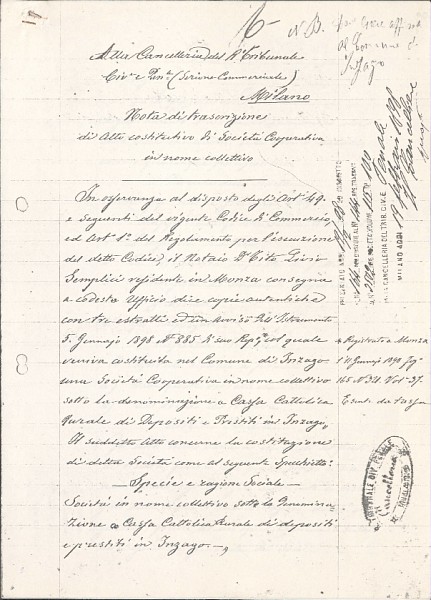 N. B.
Alla Cancelleria del R.° Tribunale
Civ.e e Pen.e (Sezione Commerciale)
Milano
Nota di trascrizione
di Atto costitutivo di Società Cooperativa
in nome collettivo
In osservanza al disposto degli Art.i 49.
e seguenti del vigente Codice di Commercio,
ed Art.° 1.° del Regolamento per l'esecuzione
del detto Codice, il Notaio D.r Tito Livio
Semplici residente in Monza consegna
a codesto Ufficio dieci copie autentiche
con tre estratti ed un avviso dell'Istrumento
5. Gennajo 1898 N.° 885 di suo Rep.°, col quale
veniva costituita nel Comune di Inzago
una Società Cooperativa in nome collettivo
sotto la denominazione di Cassa Cattolica
Rurale di Depositi e Prestiti in Inzago,
Il suddetto Atto concerne la costituzione
di detta Società come al seguente Specchietto:
Specie e ragione Sociale
Società in nome collettivo sotto la denomina
zione di Cassa Cattolica Rurale di depositi
e prestiti in Inzago
Registrato a Monza
Gennajo 1898
165 N.° 321 Vol. 37.
Esente da tassa
CANCELLERIA DEL TRIB. CIV. E Penale
MILANO ADDI
Cancelleria